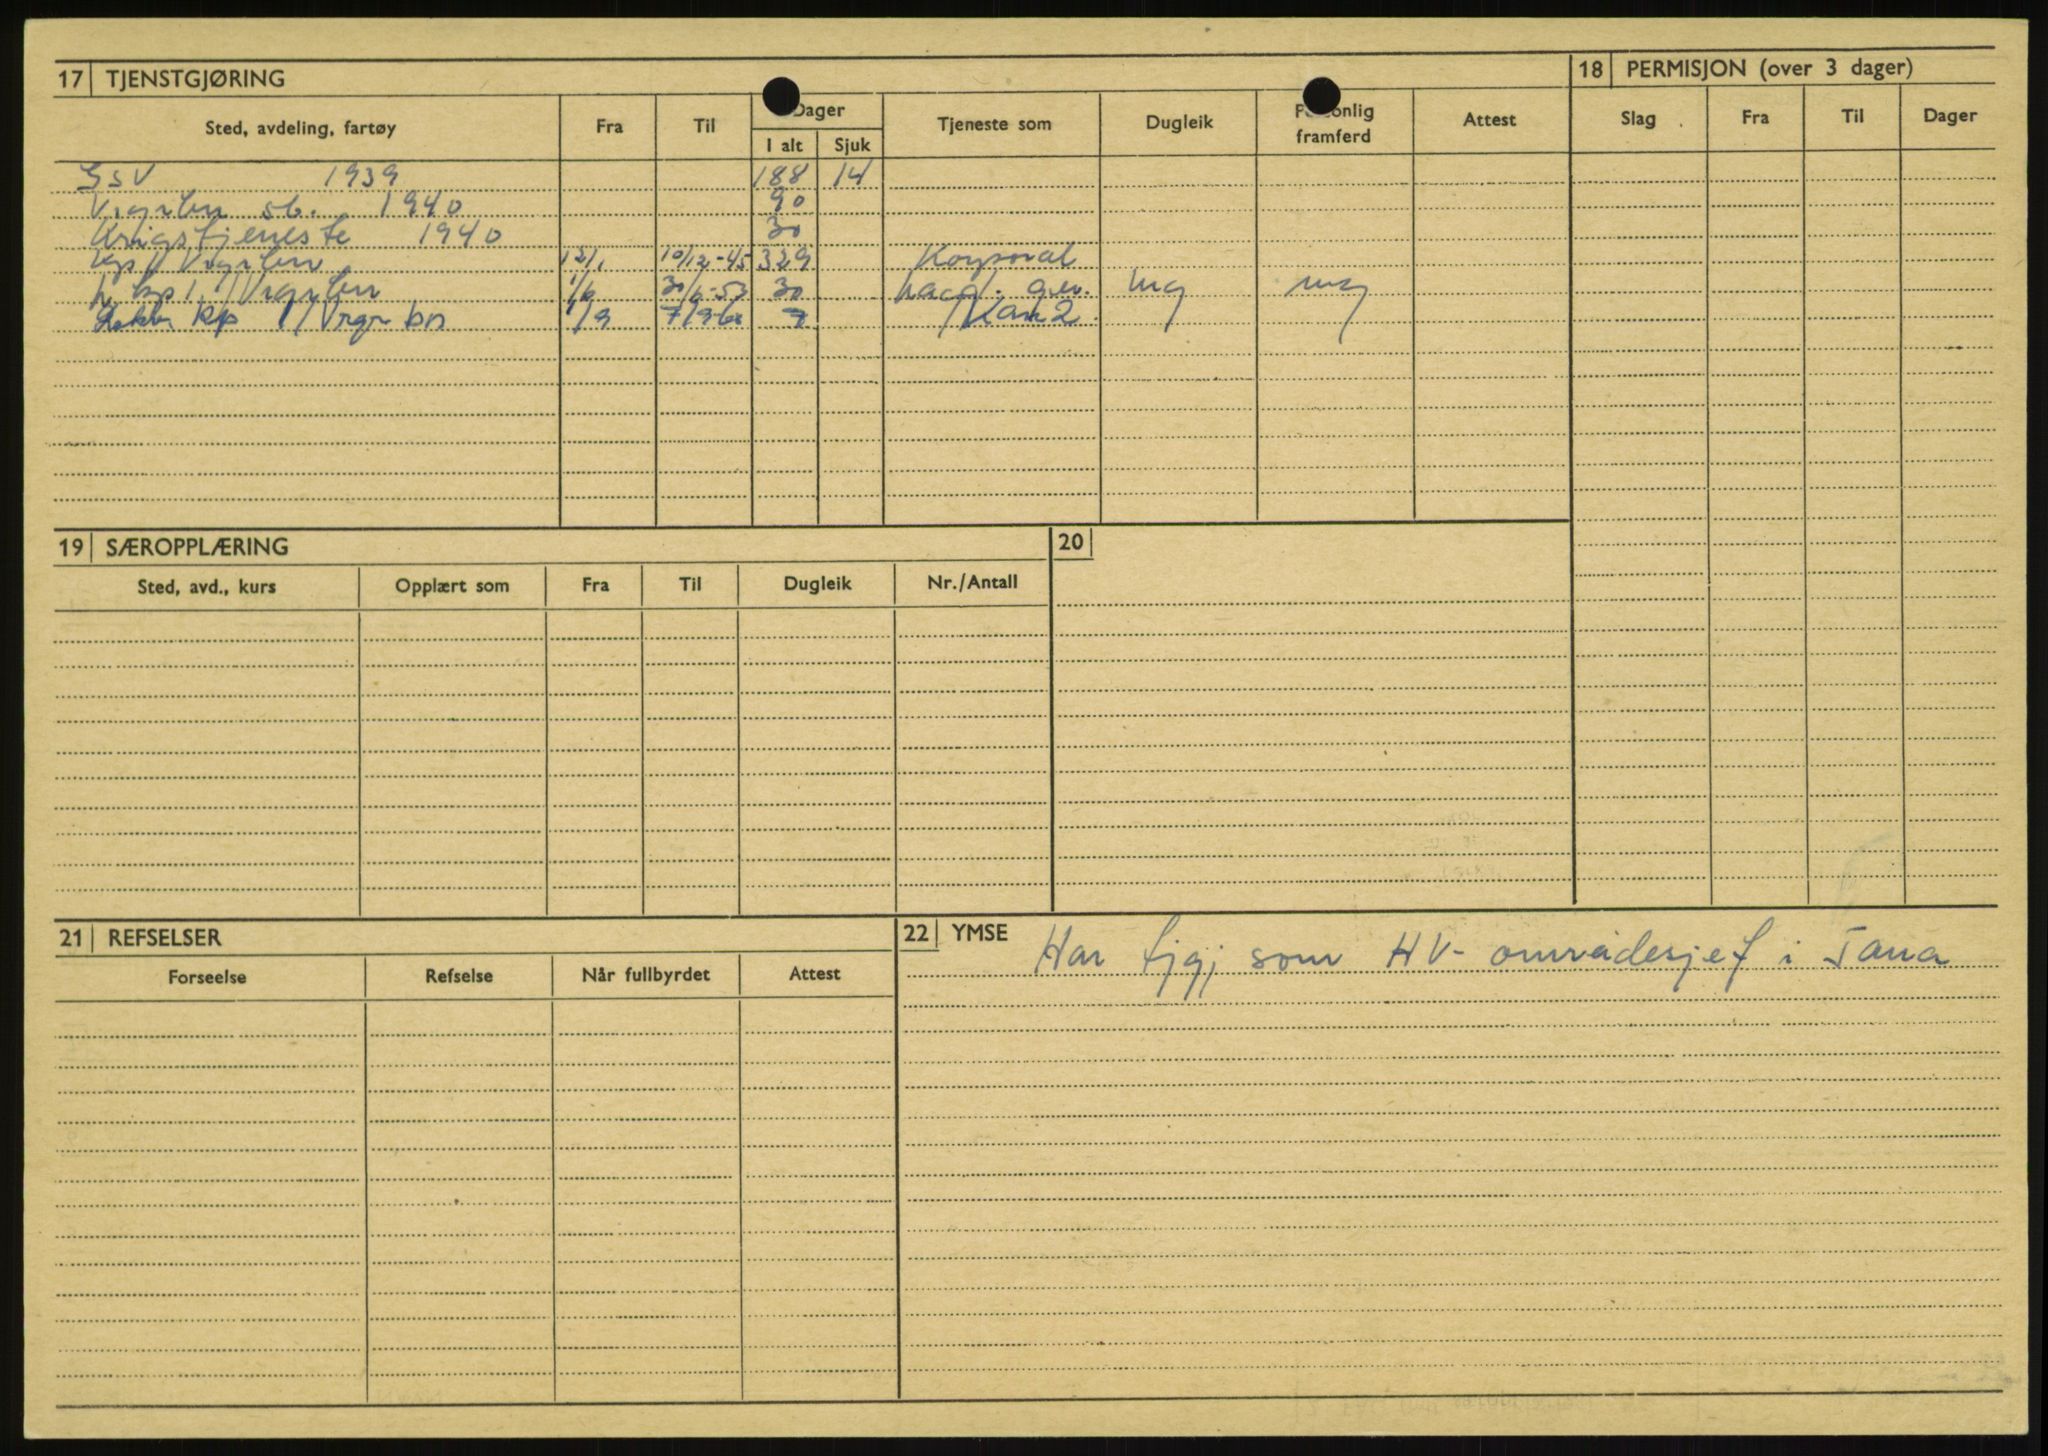 17 TJENSTGJØRING
18 PERMISJON (over 3 dager)
Sted, avdeling, fartøy Fra Til Dager Tjeneste som Dugleik framferd Attest Slag Fra Til Dager
I alt Sjuk
SSV 1939 188 14
Vrgrbn sb. 1940 90
Krigstjeneste 1940 30
Kp 1/Vrgrbn 12/1 10/12-45 329 Korporal
kp 1/Vrgrbn 1/6 30/6-53 30 mg mg
kp 1/Vrgr bn 1/9 7
19 SÆROPPLÆRING
20
Sted, avd., kurs Opplært som Fra Til Dugleik Nr./Antall
21 REFSELSER
22 YMSE Har tjgj som HV-områdesjef i Tana
Forseelse Refselse Når fullbyrdet Attest